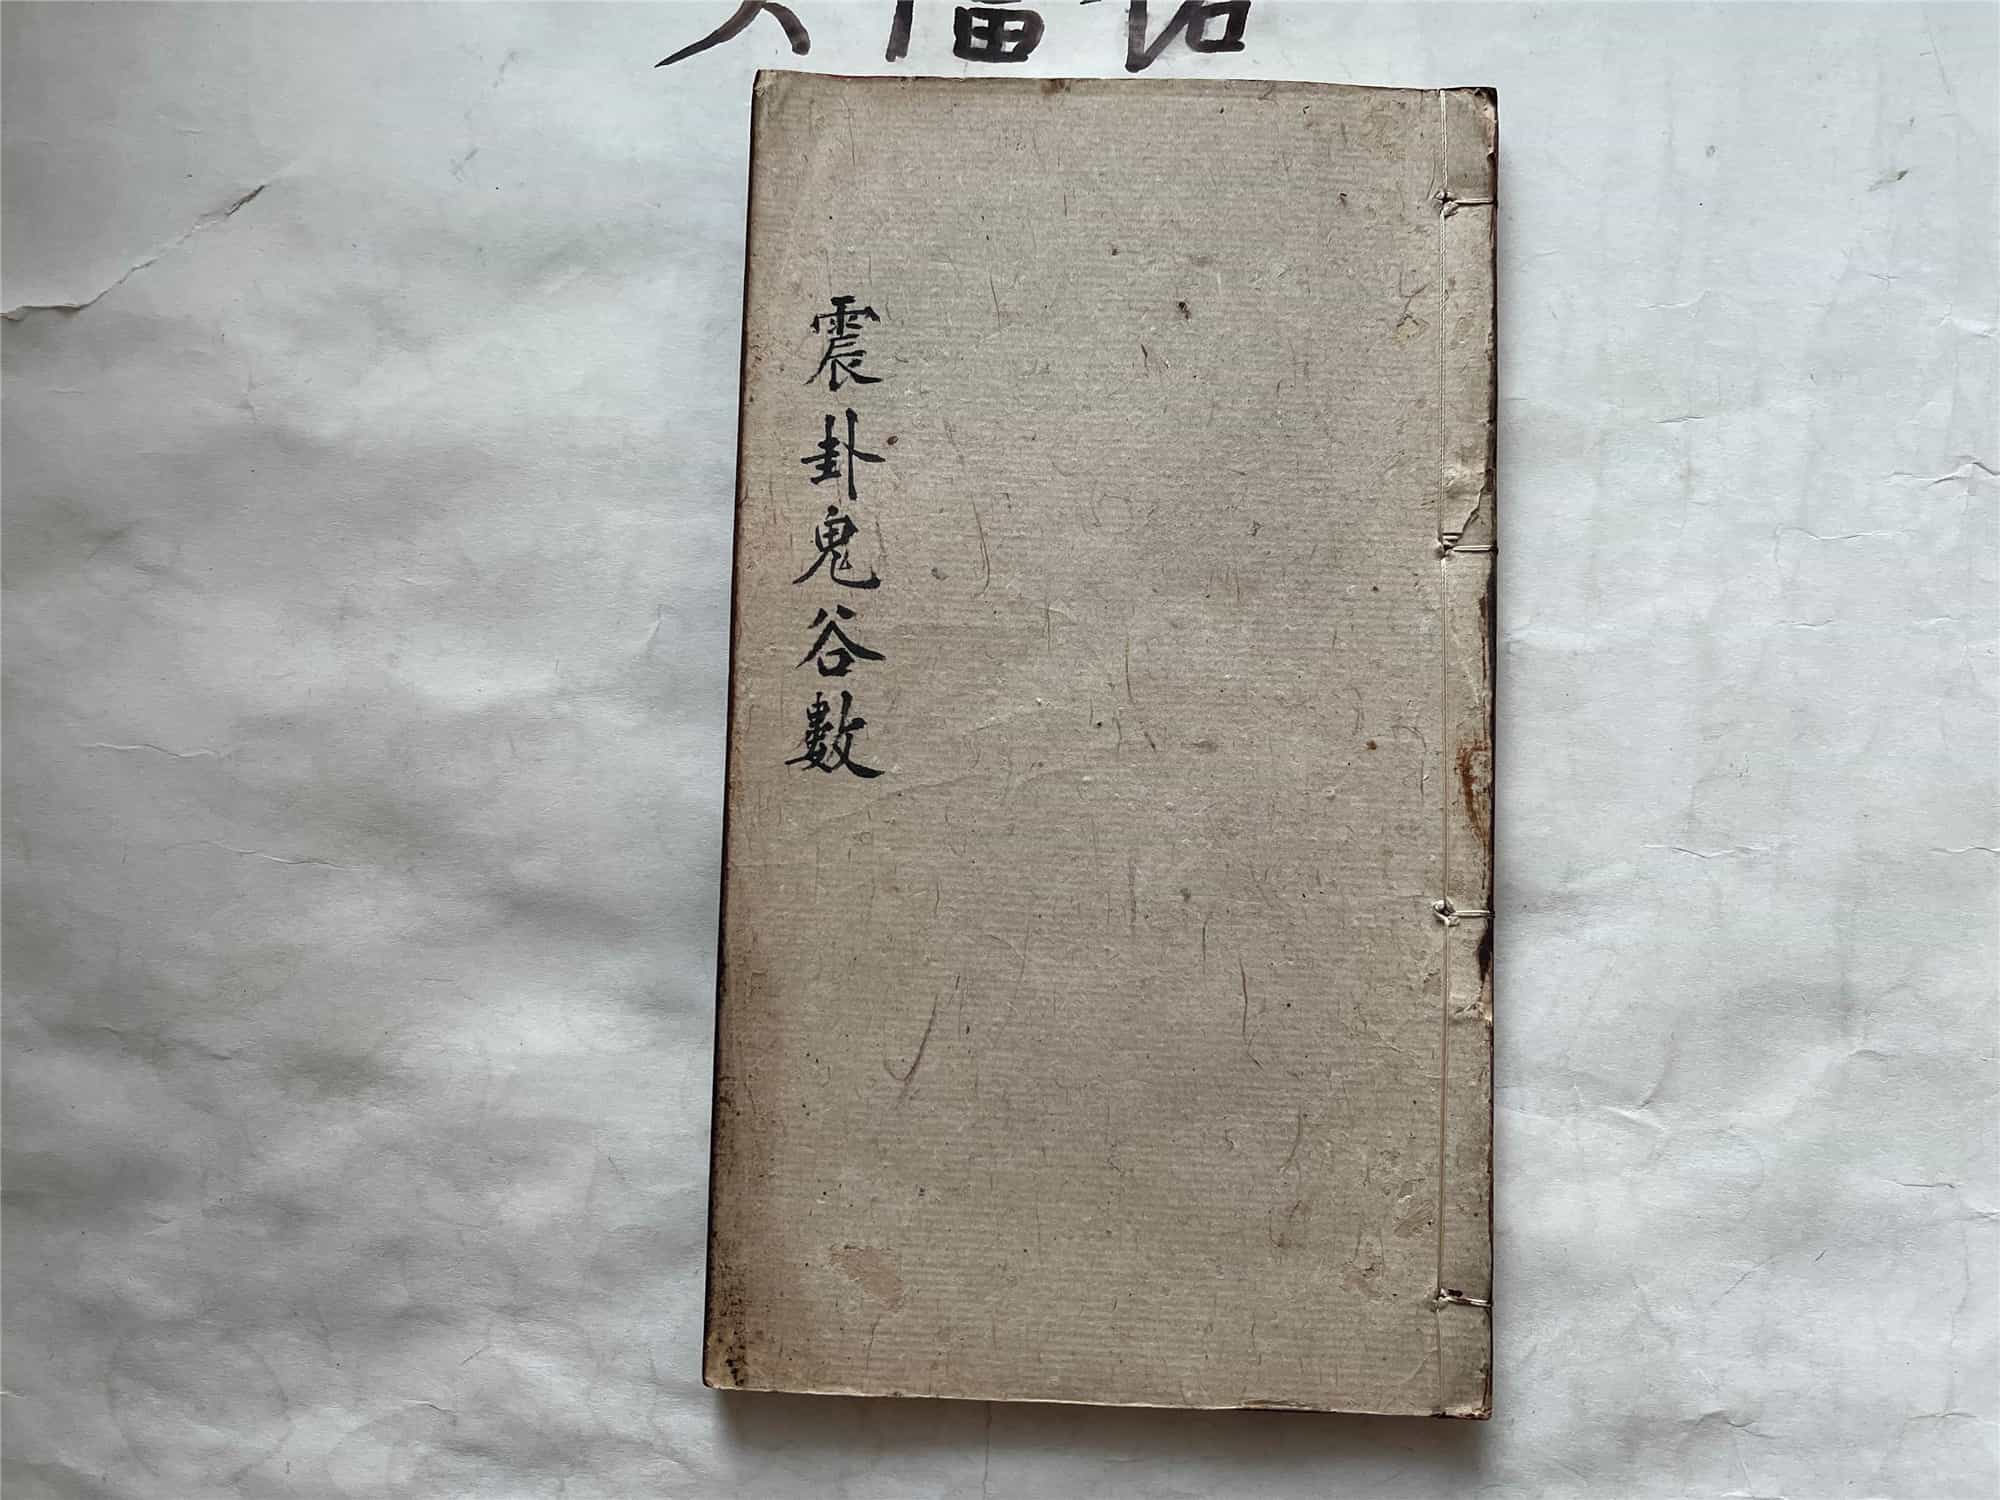 震卦鬼谷數